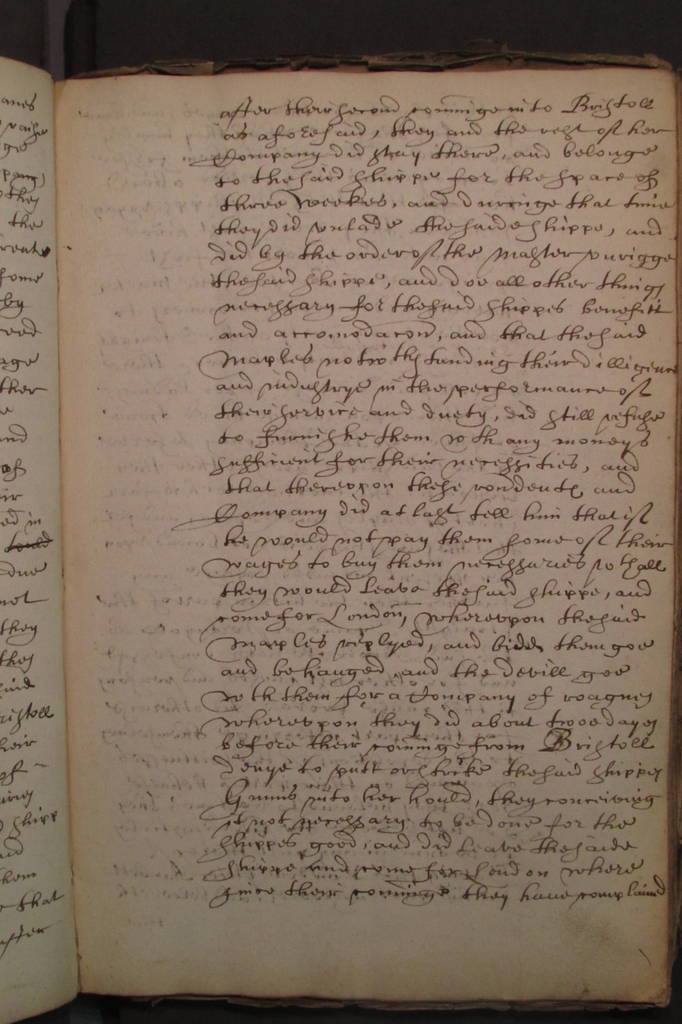 anes
the
rent
some
by
reed
age
ther
and
of
eir
ed in
due
not
they
they
said
ristoll
heir
of
shipp
and
them
e that
after
after their second comminge into Bristoll
as aforesaid, they and the rest of her
Company did stay there, and belonge
to the said shippe for the space of
three weekes, and durringe that time
they did unlade the saide shippe, and
did by the order of the Master unrigge
the said shippe, and doe all other things
necessary for the said shippes benefitt
and accomodacon, and that the said
Maples notwthstanding their dilligence
and industrye in the performance of
their service and duety, did still refuse
to furnishe them wth any moneys
sufficient for their necessities, and
that thereupon these rondents and
Company did at last tell him that if
he would not pay them some of their
wages to buy them necessaries wthall
they would leave the said shippe, and
come for London, whereupon the said
Maples replyed, and bidd them goe
and be hanged and the devill goe
wth them for a Company of roagues
whereupon they did about twoe dayes
before their comminge from Bristoll
denye to putt or strike the said shippes
Gunns into her hould, they conceiving
it not necessary to be done for the
shippes good, and did leave the saide
shippe and come for London where
since their comminge they have complained